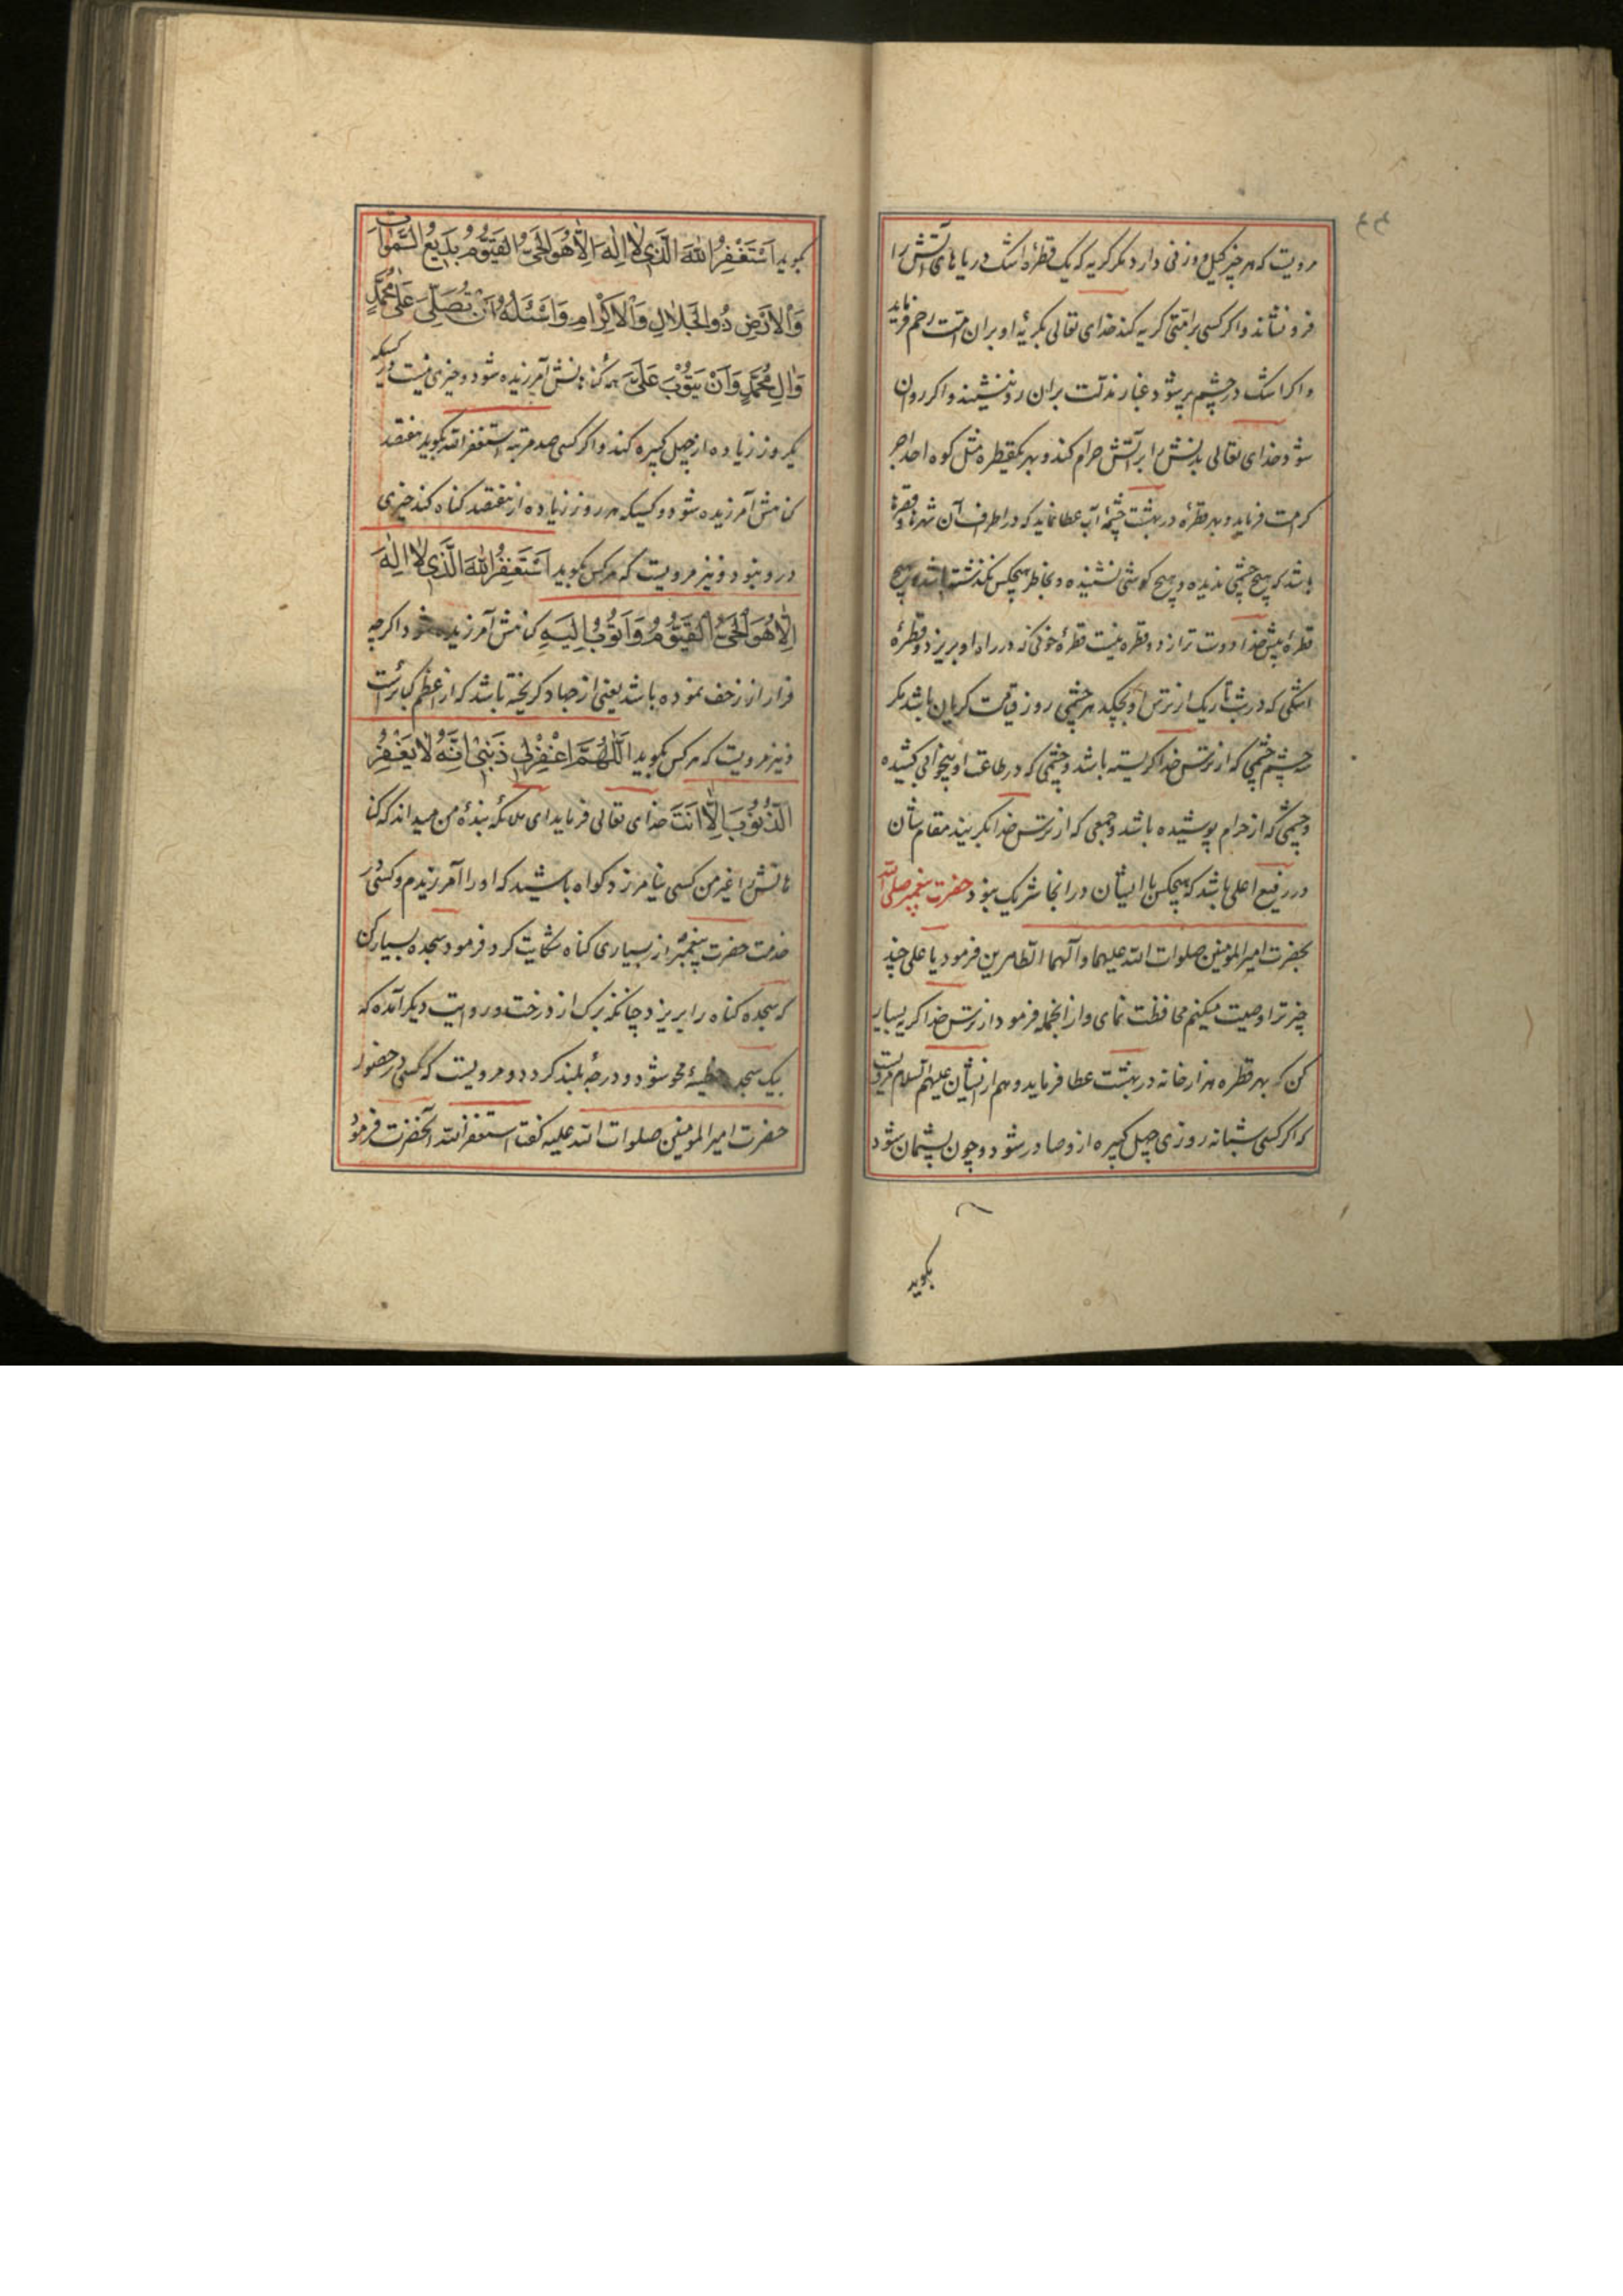 مرویست که هر چیز کیل و وزنی دارد مکر کریه که یک قطرهٔ اشک دریا های آتش را
فرو نشاند و اکر کسی بر امتی کریه کند خدای تعالی بکریهٔ او بر ان امت رحم فرماید
و اکر اشک در چشم پر شود غبار مذلت بران رو ننشیند و اکر روان
شود خدای تعالی بدنش را بر آتش حرام کند و بهر یکقطره مثل کوه احد اجر
کرامت فرماید و بهر قطره در بهشت چشمهٔ آب عطا نماید که در اطراف آن شهرها و قصرها
باشد که هیچ چشمی ندیده و هیچ کوشی نشنیده و بخاطر هیچکس نکذشته باشد و هیچ
قطرهٔ پیش خدا دوست تر از دو قطره نیست قطرهٔ خونی که در راه او بریزد و قطرهٔ
اشکی که در شب تاریک از ترس او بچکد هر چشمی روز قیامت کریان باشد مکر
سه چشم چشمی که از ترس خدا کریسته باشد و چشمی که در طاعت او بیخوابی کشیده
و چشمی که از حرام پوشیده باشد و جمعی که از ترس خدا بکریند مقام شان
در رفیع اعلی باشد که هیچکس با ایشان در انجا شریک نبود حضرت پیغمبر صلی الله
بحضرت امیر المومنین صلوات الله علیهما و آلهما الطاهرین فرمود یا علی چند
چیز ترا وصیت میکنم محافظت نمای و از انجمله فرمود از ترس خدا کریه بسیار
کن که بهر قطره هزار خانه در بهشت عطا فرماید و هم از ایشان علیهم السلام مرویست
که اکر کسی شبانه روزی چهل کبیره ازو صادر شود و چون پشیمان شود
بکوید
بکوید اَسْتَغْفِرُ اللهَ الَّذی لا اِلهَ اِلّا هُوَ الْحَیُّ القَیُّومُ بَدیعُ السَّمواتِ
وَالاَرْضِ ذُو الجَلالِ وَالاِکْرامِ وَاَسْئَلُهُ اَنْ تُصَلِّیَ عَلی مُحَمَّدٍ
وَالِ مُحَمَّدٍ وَاَنْ یَتُوبَ عَلَیَّ همه کناهانش آمرزیده شود و خیری نیست در کسیکه
یکروز زیاده از چهل کبیره کند و اکر کسی صد مرتبه استغفر الله بکوید هفتصد
کناهش آمرزیده شود و کسیکه هر روز زیاده از هفتصد کناه کند خیری
درو نبود و نیز مرویست که هر کس بکوید اَسْتَغْفِرُ اللهَ الَّذی لا اِلهَ
اِلّا هُوَ الْحَیُّ القَیُّومُ وَاَتُوبُ اِلَیهِ کناهش آمرزیده شود اکرچه
فرار از زحف نموده باشد یعنی از جهاد کریخته باشد که از اعظم کبائرست
و نیز مرویست که هر کس بکوید اَللّهُمَّ اغْفِرْلی ذَنْبی اِنَّهُ لا یَغْفِرُ
الذُّنُوبَ اِلّا اَنْتَ خدای تعالی فرماید ای ملائکه بندهٔ من میداند که کنا
هانش را غیر من کسی نیامرزد کواه باشید که او را آمرزیدم و کسی در
خدمت حضرت پیغمبر از بسیاری کناه شکایت کرد فرمود سجده بسیار کن
که سجده کناه را بریزد چنانکه برک از درخت و در روایت دیکر آمده که
بیک سجده خطیئهٔ محو شود و درجهٔ بلند کردد و مرویست که کسی در حضور
حضرت امیر المومنین صلوات الله علیه کفت استغفر الله آنحضرت فرمود